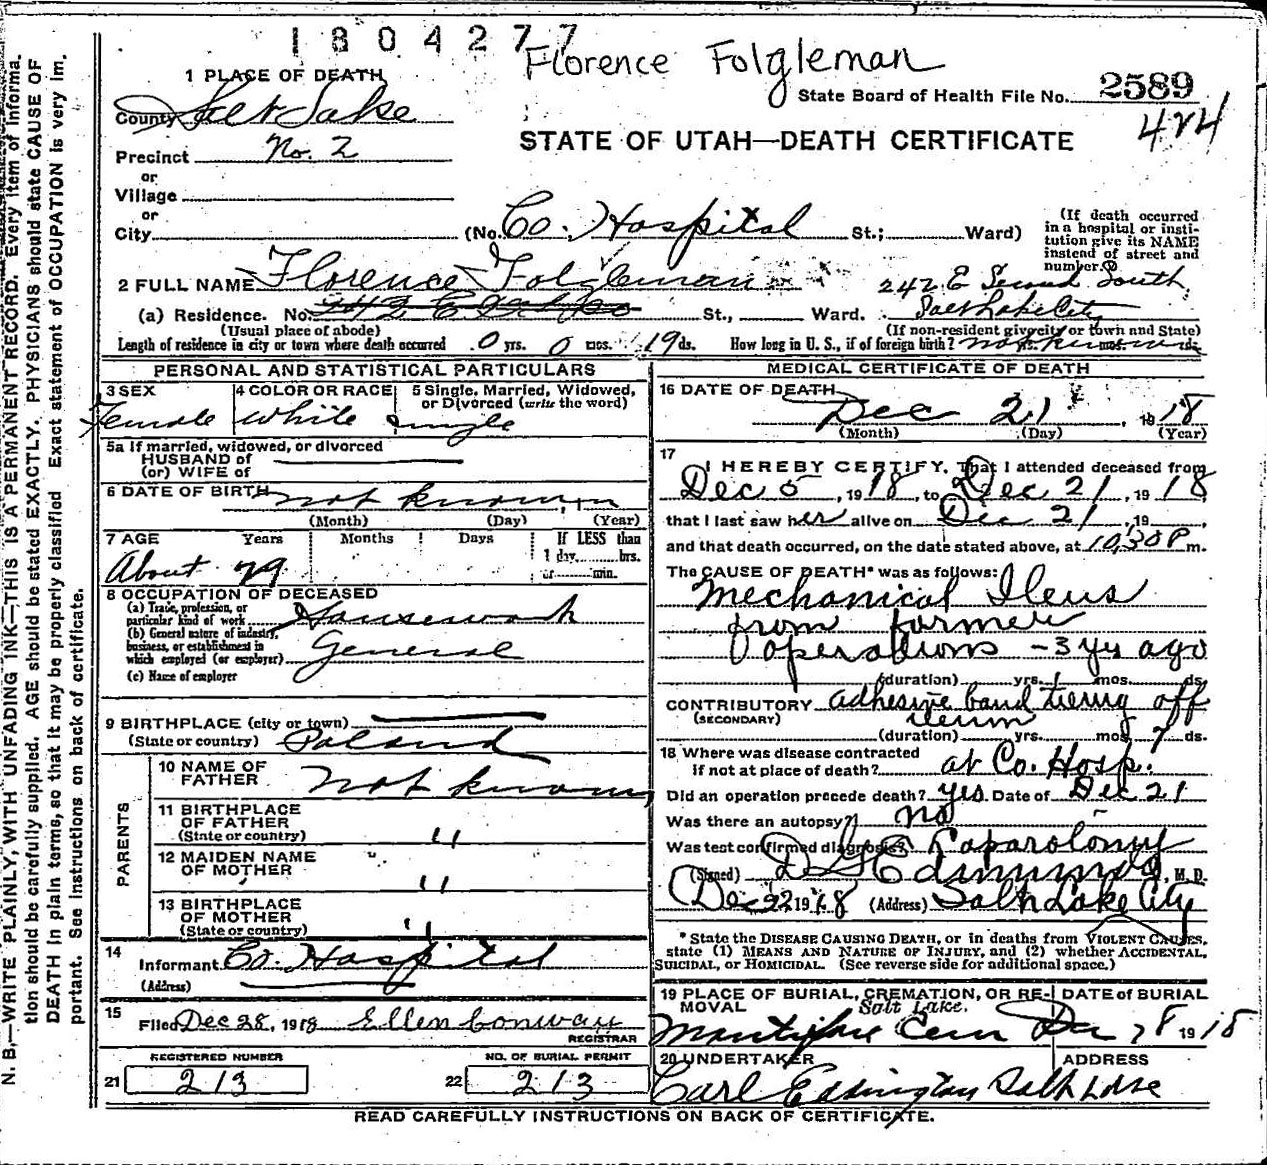 1804277
Florence Folgleman
1 PLACE OF DEATH
State Board of Health File No. 2589
County Salt Lake
424
STATE OF UTAH—DEATH CERTIFICATE
Precinct No. 2
or
Village
or
City (No. Co. Hospital St.; Ward)
(If death occurred in a hospital or institution give its NAME instead of street and number.)
2 FULL NAME Florence Folgleman
242 E Second South
(a) Residence. No. St., Ward. Salt Lake City
(Usual place of abode) (If non-resident give city or town and State)
Length of residence in city or town where death occurred 0 yrs. 0 mos. 19 ds. How long in U. S., if of foreign birth? not known yrs. mos. ds.
PERSONAL AND STATISTICAL PARTICULARS
3 SEX 4 COLOR OR RACE 5 Single, Married, Widowed, or Divorced (write the word)
Female White Single
5a If married, widowed, or divorced
HUSBAND of
(or) WIFE of
6 DATE OF BIRTH not known
(Month) (Day) (Year)
7 AGE Years Months Days If LESS than
1 day, hrs.
or min.
About 29
8 OCCUPATION OF DECEASED
(a) Trade, profession, or particular kind of work Housework
(b) General nature of industry, business, or establishment in which employed (or employer) General
(c) Name of employer
9 BIRTHPLACE (city or town)
(State or country) Poland
PARENTS
10 NAME OF FATHER not known
11 BIRTHPLACE OF FATHER (State or country) "
12 MAIDEN NAME OF MOTHER "
13 BIRTHPLACE OF MOTHER (State or country) "
14 Informant Co. Hospital
(Address)
15 Filed Dec 28, 1918 Ellen Conway
REGISTRAR
REGISTERED NUMBER NO. OF BURIAL PERMIT
21 213 22 213
MEDICAL CERTIFICATE OF DEATH
16 DATE OF DEATH
Dec 21, 1918
(Month) (Day) (Year)
17 I HEREBY CERTIFY, That I attended deceased from
Dec 5, 1918, to Dec 21, 1918
that I last saw her alive on Dec 21, 19
and that death occurred, on the date stated above, at 10,30 P m.
The CAUSE OF DEATH* was as follows:
Mechanical Ileus
from former
operations - 3 ys ago
(duration) yrs. mos. ds.
CONTRIBUTORY adhesive band tieing off
(SECONDARY) ileum
(duration) yrs. mos. 7 ds.
18 Where was disease contracted
if not at place of death? at Co. Hosp.
Did an operation precede death? yes. Date of Dec 21
Was there an autopsy? no
Was test confirmed diagnosis? Laparotomy
(Signed) D G Edmunds, M. D.
Dec 22 1918 (Address) Salt Lake City
*State the DISEASE CAUSING DEATH, or in deaths from VIOLENT CAUSES,
state (1) MEANS AND NATURE OF INJURY, and (2) whether ACCIDENTAL,
SUICIDAL, or HOMICIDAL. (See reverse side for additional space.)
19 PLACE OF BURIAL, CREMATION, OR REMOVAL DATE of BURIAL
Salt Lake.
Montifiore Cem Dec 28 1918
20 UNDERTAKER ADDRESS
Carl Eddington Salt Lake
READ CAREFULLY INSTRUCTIONS ON BACK OF CERTIFICATE.
N. B.—WRITE PLAINLY, WITH UNFADING INK—THIS IS A PERMANENT RECORD. Every item of information should be carefully supplied. AGE should be stated EXACTLY. PHYSICIANS should state CAUSE OF
DEATH in plain terms, so that it may be properly classified. Exact statement of OCCUPATION is very important. See instructions on back of certificate.